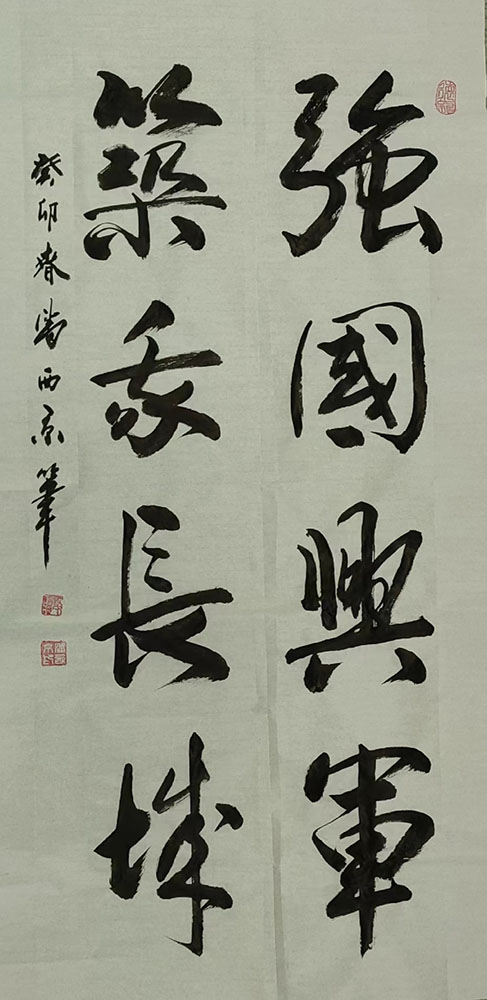 強國興軍
築我長城
癸卯春 西京筆